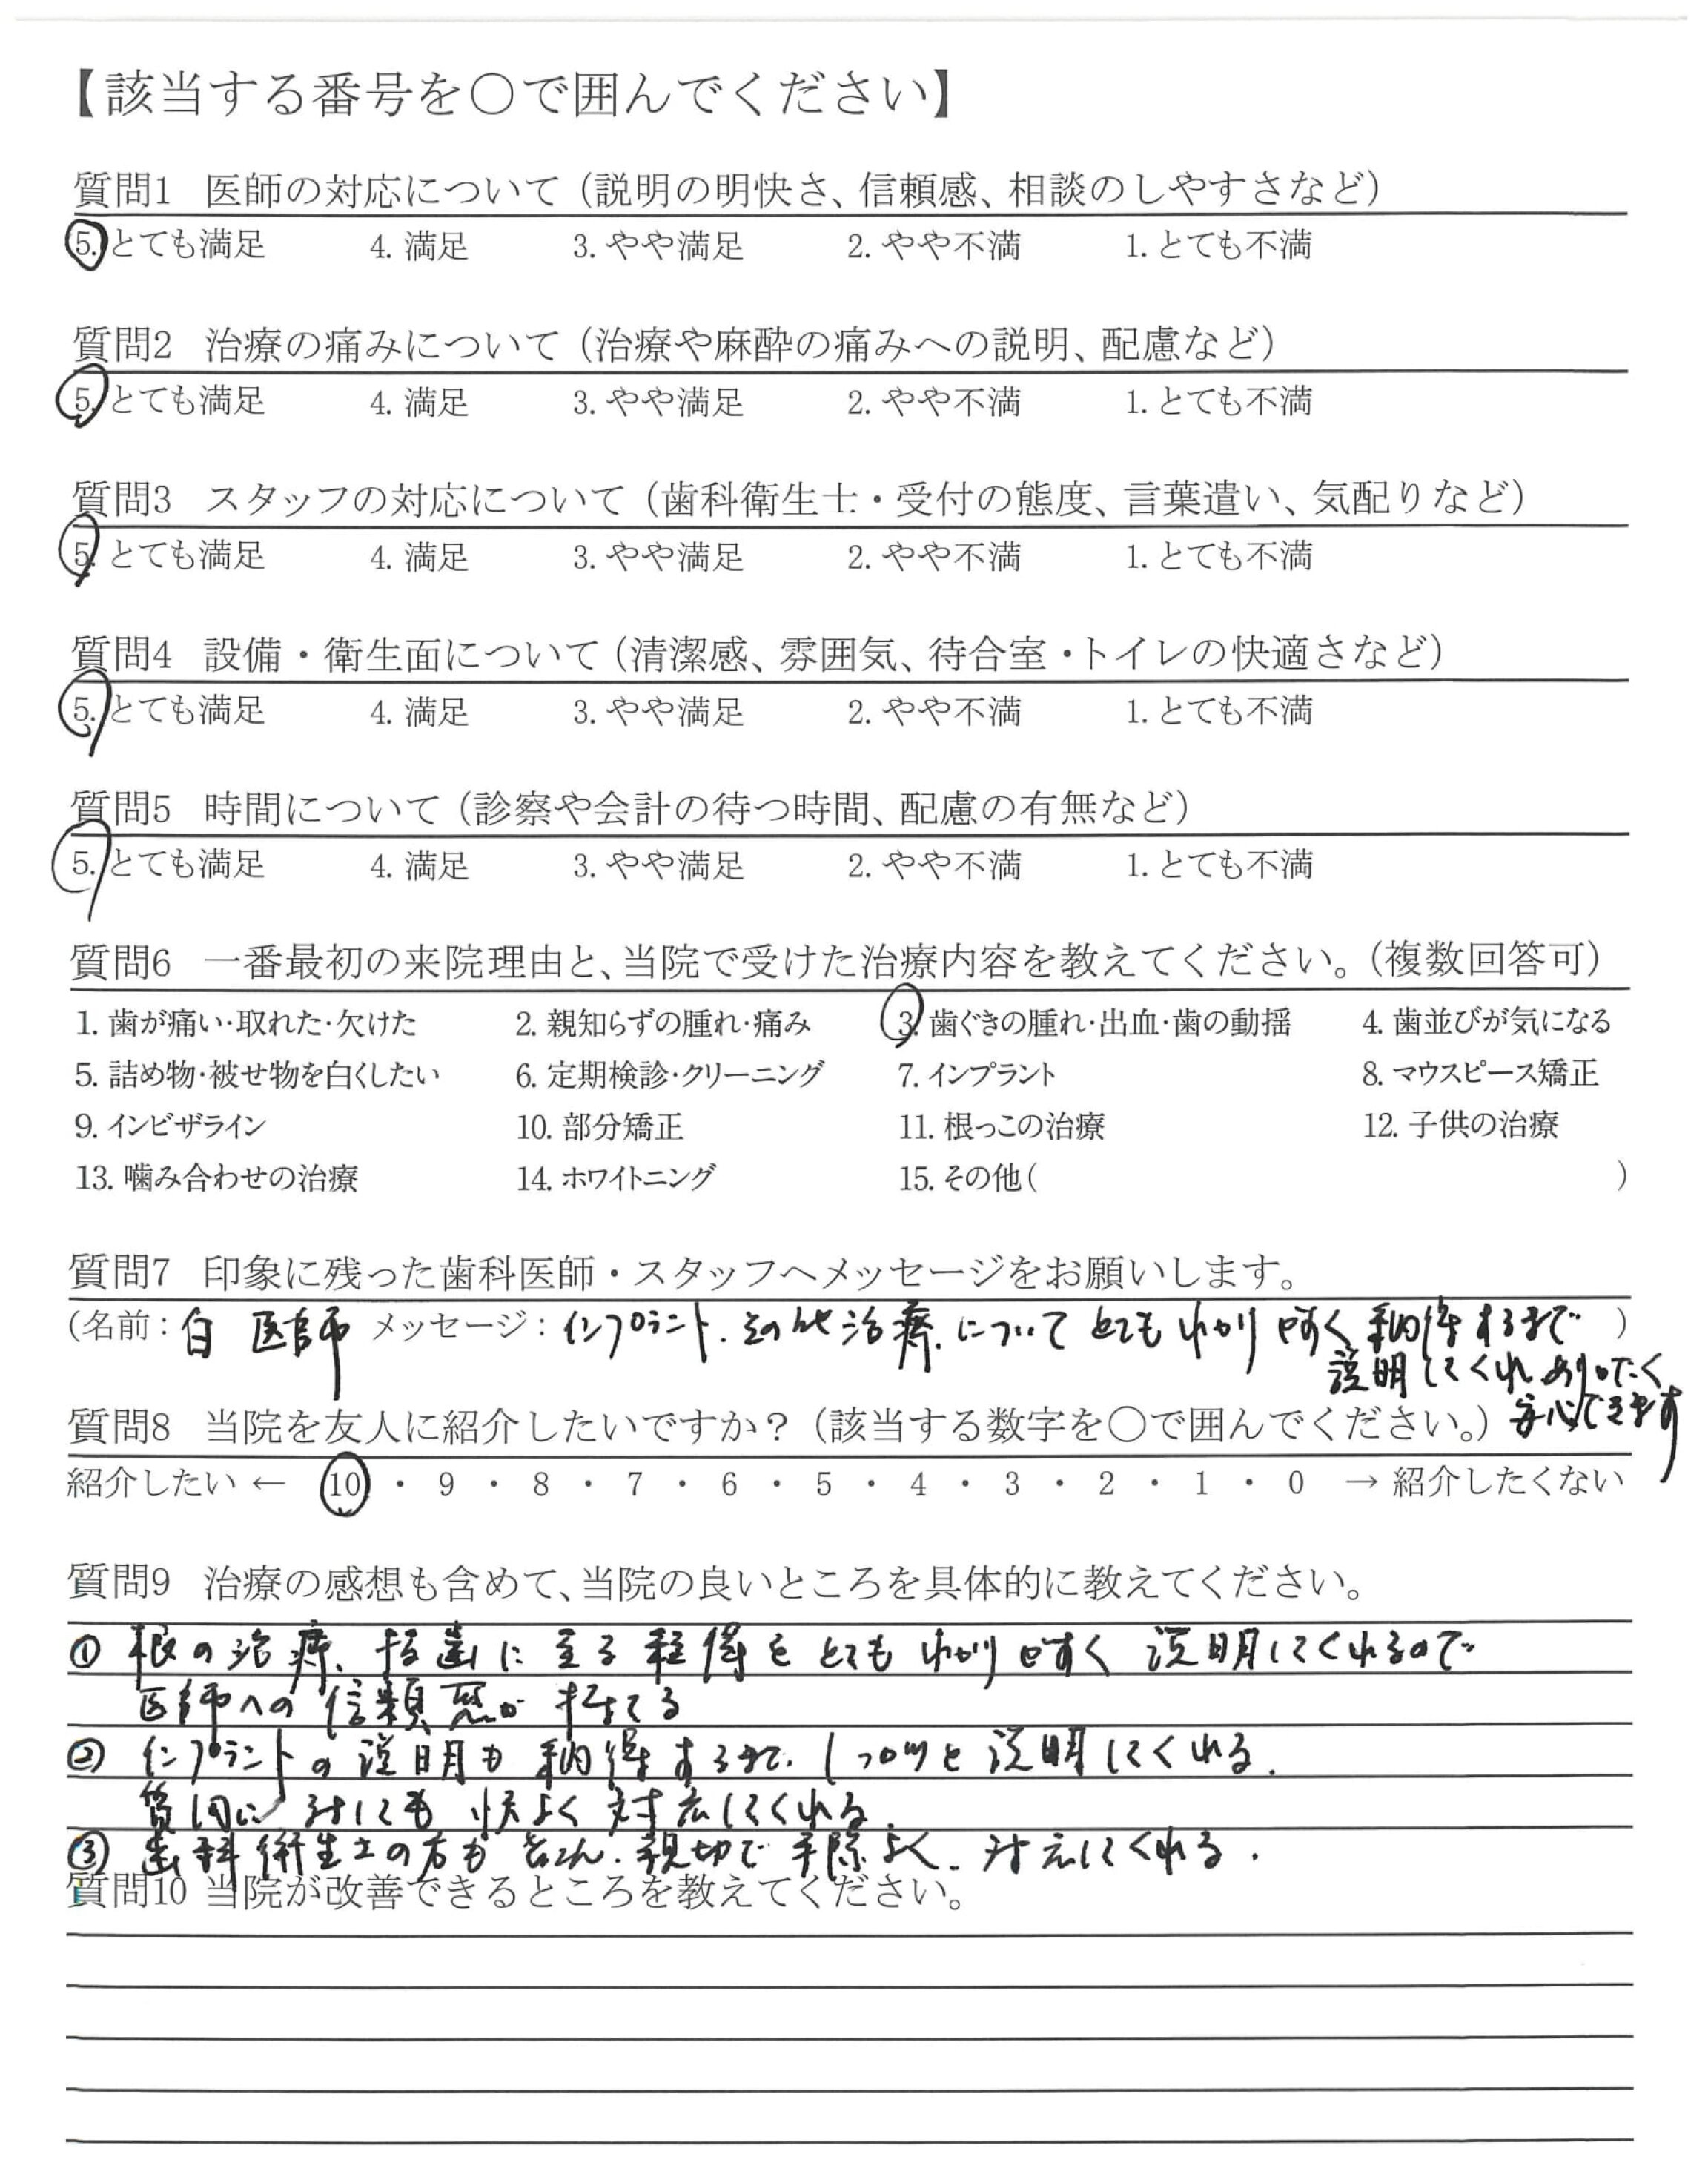 【該当する番号を○で囲んでください】
質問1 医師の対応について（説明の明快さ、信頼感、相談のしやすさなど）
5. とても満足 4. 満足 3. やや満足 2. やや不満 1. とても不満
質問2 治療の痛みについて（治療や麻酔の痛みへの説明、配慮など）
5. とても満足 4. 満足 3. やや満足 2. やや不満 1. とても不満
質問3 スタッフの対応について（歯科衛生士・受付の態度、言葉遣い、気配りなど）
5. とても満足 4. 満足 3. やや満足 2. やや不満 1. とても不満
質問4 設備・衛生面について（清潔感、雰囲気、待合室・トイレの快適さなど）
5. とても満足 4. 満足 3. やや満足 2. やや不満 1. とても不満
質問5 時間について（診察や会計の待つ時間、配慮の有無など）
5. とても満足 4. 満足 3. やや満足 2. やや不満 1. とても不満
質問6 一番最初の来院理由と、当院で受けた治療内容を教えてください。（複数回答可）
1. 歯が痛い・取れた・欠けた 2. 親知らずの腫れ・痛み 3. 歯ぐきの腫れ・出血・歯の動揺 4. 歯並びが気になる
5. 詰め物・被せ物を白くしたい 6. 定期検診・クリーニング 7. インプラント 8. マウスピース矯正
9. インビザライン 10. 部分矯正 11. 根っこの治療 12. 子供の治療
13. 噛み合わせの治療 14. ホワイトニング 15. その他（ ）
質問7 印象に残った歯科医師・スタッフへメッセージをお願いします。
（名前：白 医師 メッセージ：インプラント、その他治療、についてとてもわかりやすく納得するまで ）
説明してくれ ありがたく
安心できます
質問8 当院を友人に紹介したいですか？（該当する数字を○で囲んでください。）
紹介したい ← 10 ・ 9 ・ 8 ・ 7 ・ 6 ・ 5 ・ 4 ・ 3 ・ 2 ・ 1 ・ 0 → 紹介したくない
質問9 治療の感想も含めて、当院の良いところを具体的に教えてください。
① 根の治療、抜歯に至る経緯をとてもわかりやすく説明してくれるので
医師への信頼感が持てる
② インプラントの説明も納得するまで、じっくりと説明してくれる。
質問に対しても快よく対応してくれる。
③ 歯科衛生士の方も 親切で手際よく、対応してくれる．
質問10 当院が改善できるところを教えてください。